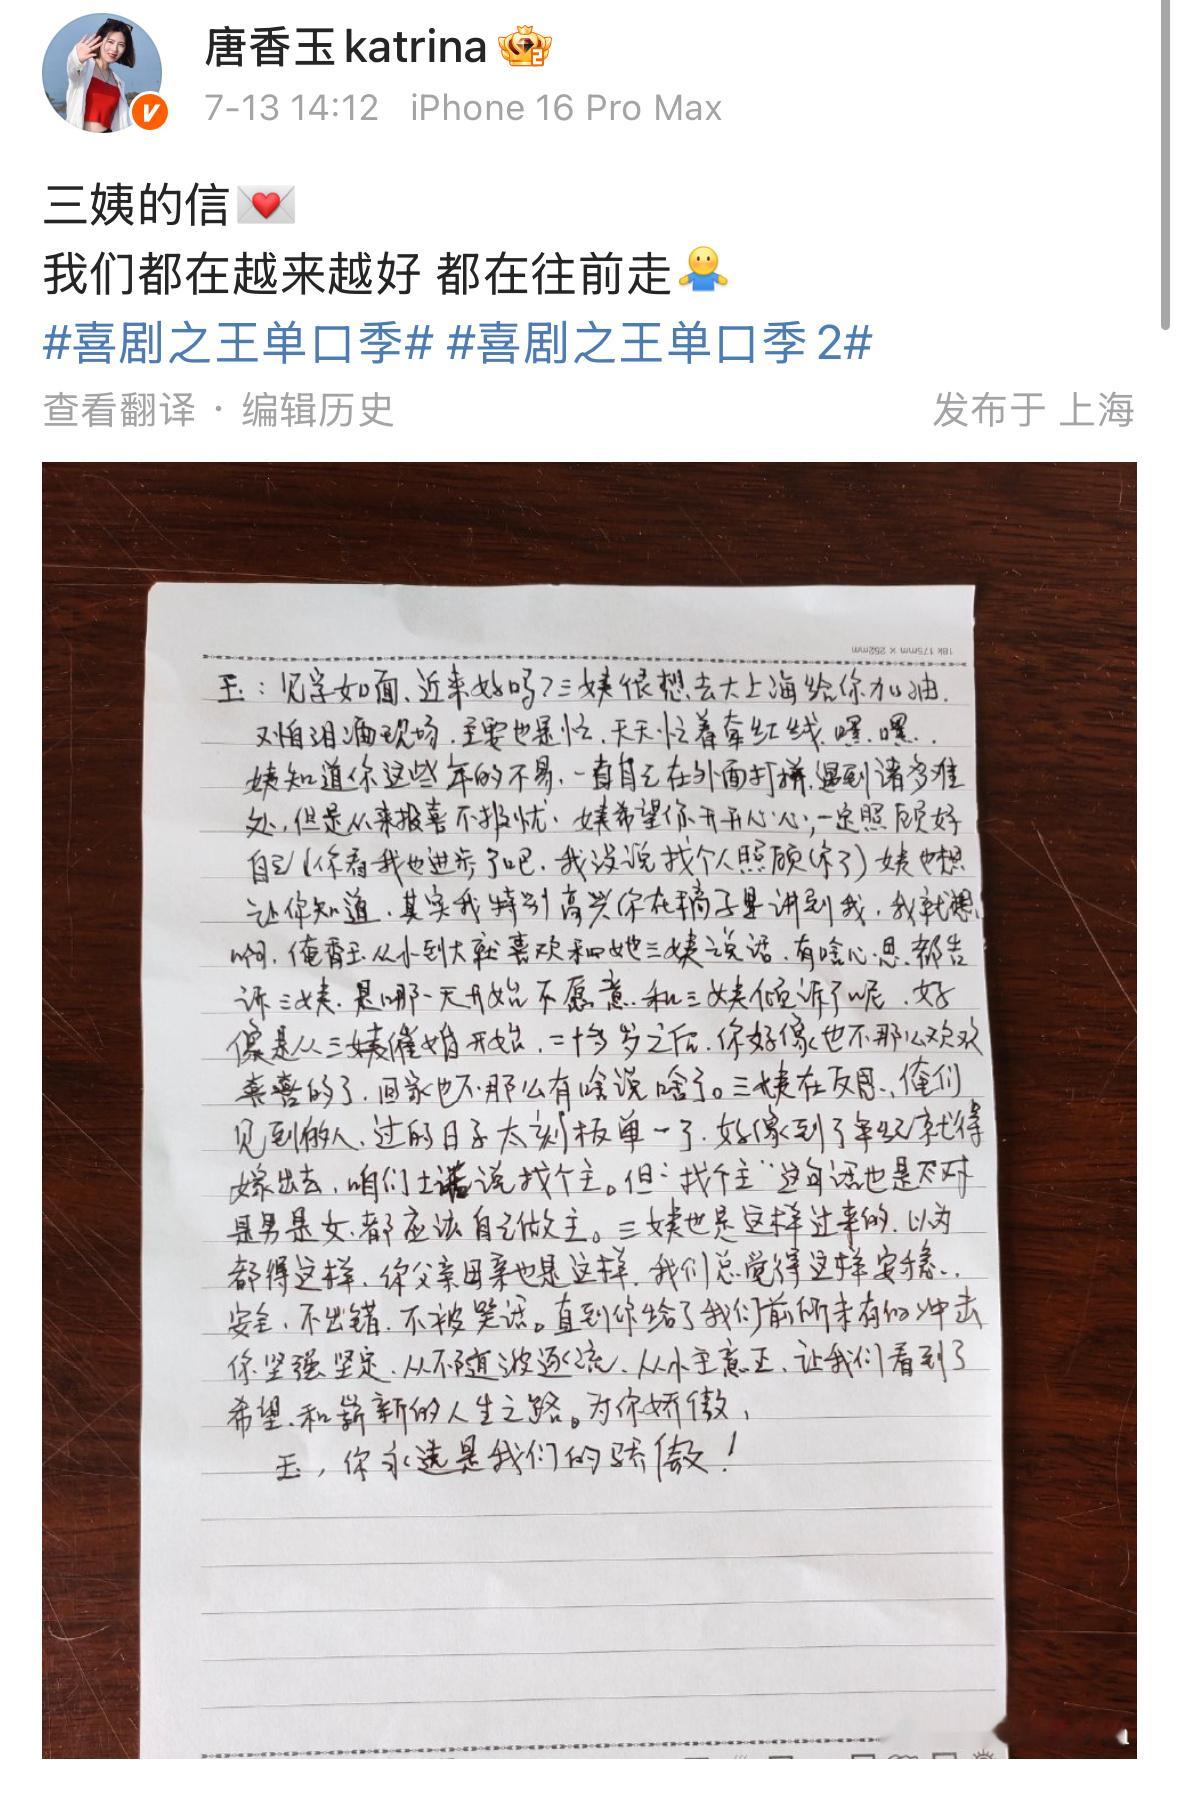 唐香玉katrina
7-13 14:12 iPhone 16 Pro Max
三姨的信
我们都在越来越好 都在往前走
#喜剧之王单口季# #喜剧之王单口季2#
查看翻译 · 编辑历史 发布于 上海
18k 175mm × 252mm
玉：见字如面、近来好吗？三姨很想去大上海给你加油.
又怕泪洒现场.主要也是忙.天天忙着牵红线.嘿.嘿..
姨知道你这些年的不易.一直自己在外面打拼.遇到诸多难
处.但是从来报喜不报忧.姨希望你开开心心,一定照顾好
自己(你看我也进步了吧.我没说找个人照顾你了)姨也想
让你知道.其实我特别高兴你在稿子里讲到我.我就想
啊.俺香玉从小到大就喜欢和她三姨说话.有啥心思.都告
诉三姨.是哪一天开始不愿意.和三姨倾诉了呢.好
像是从三姨催婚开始.二十多岁之后.你好像也不那么欢欢
喜喜的了.回家也不那么有啥说啥了。三姨在反思.俺们
见到的人、过的日子太刻板单一了.好像到了年纪就得
嫁出去.咱们土话说找个主。但“找个主”这句话也是不对
是男是女.都应该自己做主。三姨也是这样过来的.以为
都得这样.你父亲母亲也是这样.我们总觉得这样安稳..
安全.不出错.不被笑话。直到你给了我们前所未有的冲击
你坚强坚定.从不随波逐流.从小主意正.让我们看到了
希望.和崭新的人生之路。为你娇傲,
玉,你永远是我们的骄傲!